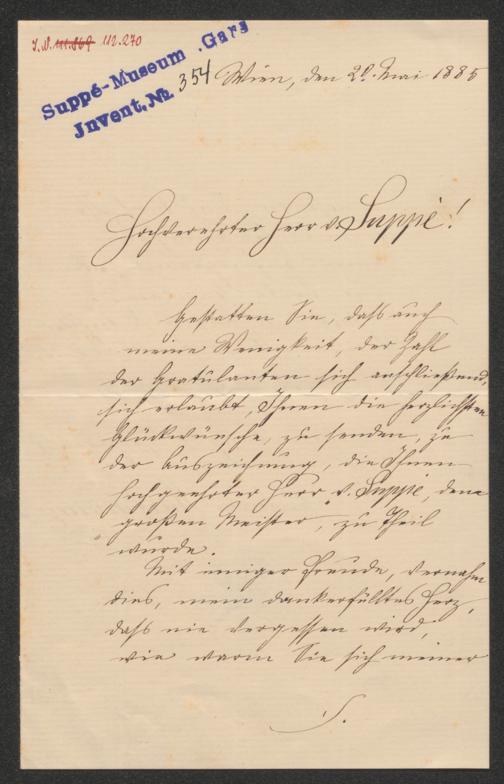 I.N. 111.869 112.270
Suppé-Museum Gars
Invent. No. 354
Wien, den 29. Mai 1885
Hochverehrter Herr v. Suppé!
Gestatten Sie, daß auch
meine Wenigkeit, der Zahl
der Gratulanten sich anschließend,
sich erlaubt, Ihnen die herzlichsten
Glückwünsche, zu senden, zu
der Auszeichnung, die Ihnen
hochgeehrter Herr v. Suppé, dem
großen Meister, zu Theil
wurde.
Mit inniger Freude, vernahm
dies, mein dankerfülltes Herz,
daß nie vergessen wird,
wie warm Sie sich meiner